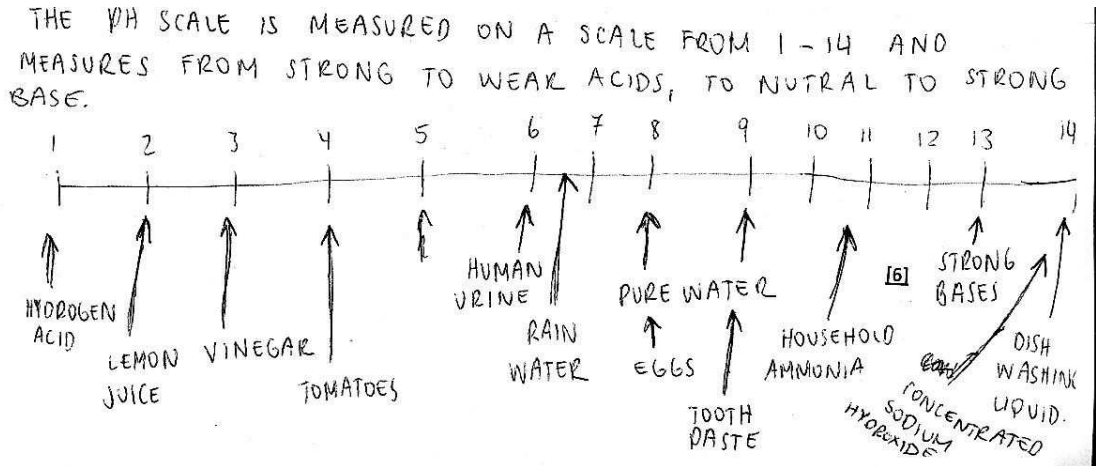 THE PH SCALE IS MEASURED ON A SCALE FROM 1 - 14 AND
MEASURES FROM STRONG TO WEAR ACIDS, TO NUTRAL TO STRONG
BASE.
1 2 3 4 5 6 7 8 9 10 11 12 13 14
HYDROGEN
ACID
LEMON
JUICE
VINEGAR
TOMATOES
HUMAN
URINE
RAIN
WATER
PURE WATER
EGGS
TOOTH
PASTE
HOUSEHOLD
AMMONIA
[6]
STRONG
BASES
CONCENTRATED
SODIUM
HYDROXIDE
DISH
WASHING
LIQUID.